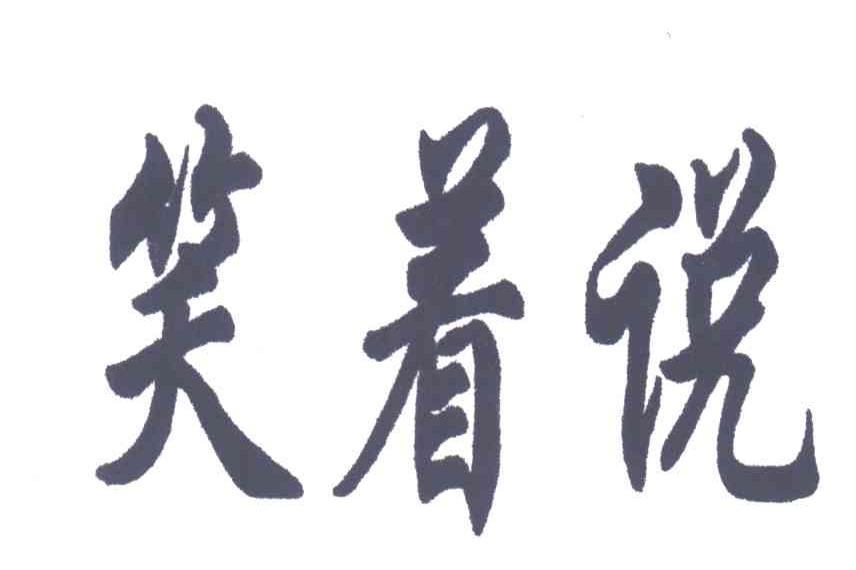 笑着说